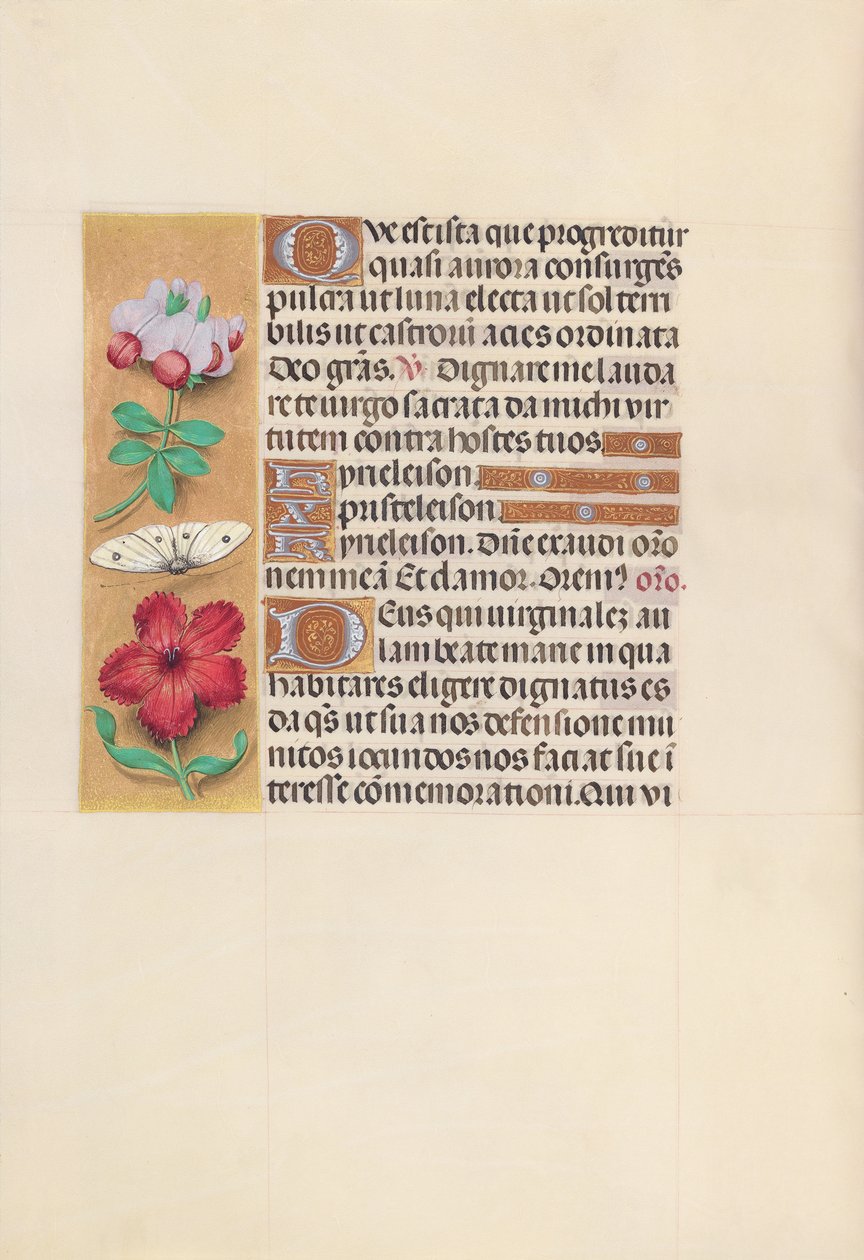 Que est ista que progreditur
quasi aurora consurgēs
pulcra ut luna electa ut sol terri
bilis ut castrorū acies ordinata
Deo grās. V̄. Dignare me lauda
re te uirgo sacrata da michi vir
tutem contra hostes tuos.
Kyrieleison.
Xpristeleison.
Kyrieleison. Dn̄e exaudi or̄o
nem meā Et clamor. Orem⁹ or̄o.
Deus qui uirginalez au
lam beate marie in qua
habitares eligere dignatus es
da q̄s ut sua nos defensione mu
nitos iocundos nos faciat sue ī
teresse cōmemorationi. Qui vi